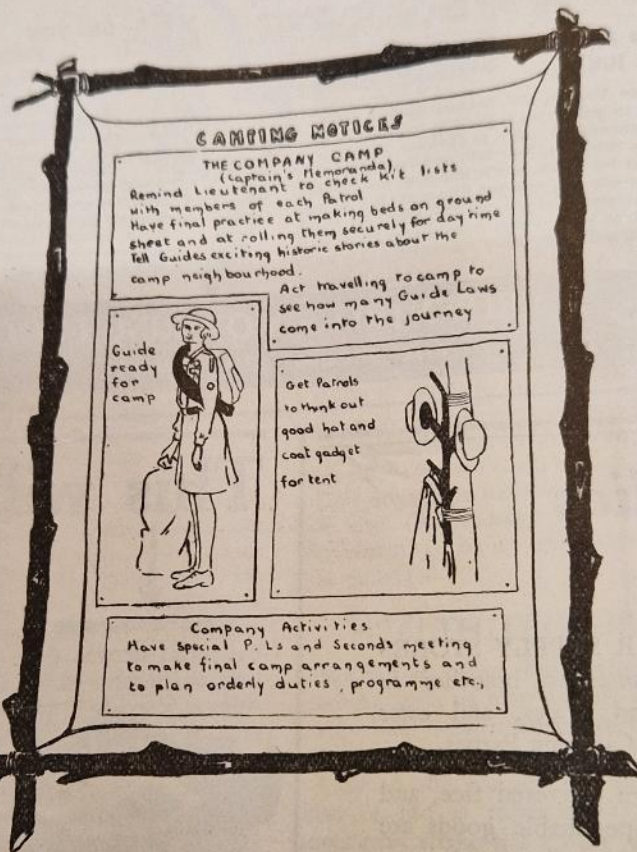 CAMPING NOTICES
THE COMPANY CAMP
(Captain's Memoranda)
Remind Lieutenant to check kit lists
with members of each Patrol
Have final practice at making beds on ground
sheet and at rolling them securely for day time
Tell Guides exciting historic stories about the
camp neighbourhood.
Act travelling to camp to
see how many Guide Laws
come into the journey
Guide
ready
for
camp
Get Patrols
to think out
good hat and
coat gadget
for tent
Company Activities.
Have special P. Ls and Seconds meeting
to make final camp arrangements and
to plan orderly duties, programme etc.,